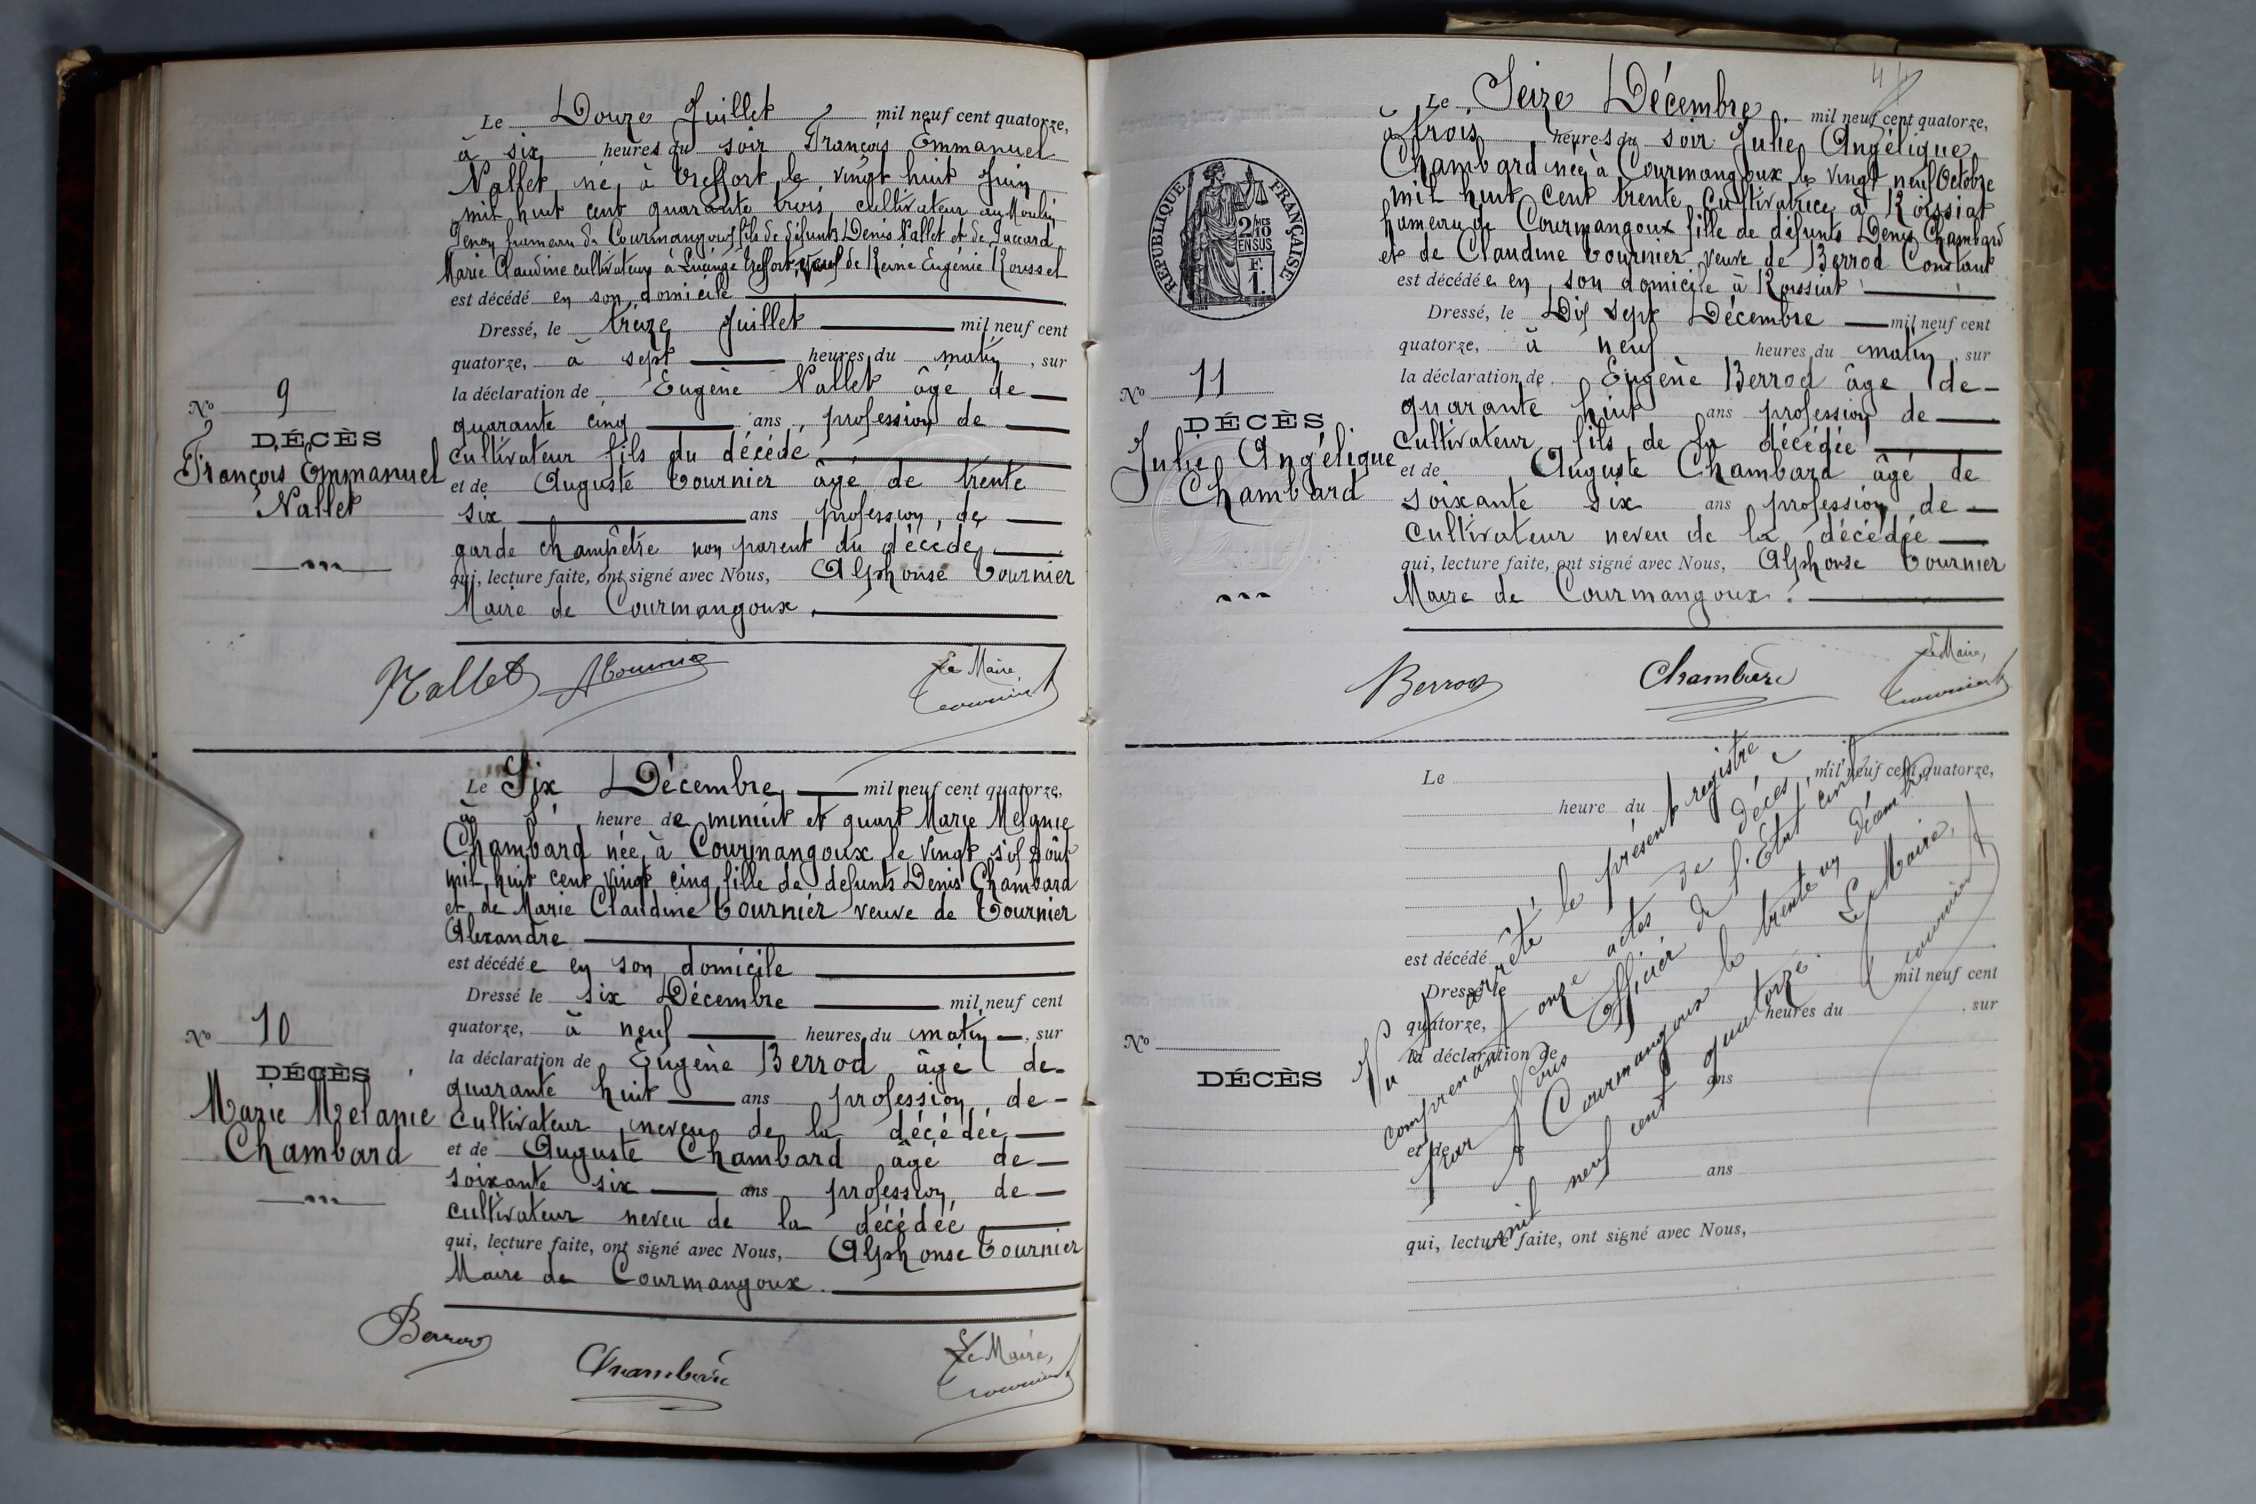 Le Douze Juillet mil neuf cent quatorze,
à six heures du soir François Emmanuel
Nallet né à Treffort le vingt huit Juin
mil huit cent quarante trois, cultivateur au Moulin
hameau de Courmangoux fils de défunts Denis Nallet et de Juccard
Marie Claudine cultivateurs à Treffort, veuf de Reine Eugénie Rousset
est décédé en son domicile
Dressé, le treize Juillet mil neuf cent
quatorze, à sept heures du matin, sur
la déclaration de Eugène Nallet âgé de
quarante cinq ans, profession de
cultivateur fils du décédé
et de Auguste Tournier âgé de trente
six ans profession de
garde champêtre non parent du décédé,
qui, lecture faite, ont signé avec Nous, Alphonse Tournier
Maire de Courmangoux.
No 9
DÉCÈS
François Emmanuel
Nallet
Nallet ATournier Le Maire,
Tournier
Le Six Décembre mil neuf cent quatorze,
à heure de minuit et quart Marie Melanie
Chambard née à Courmangoux le vingt six Août
mil huit cent vingt cinq fille de défunts Denis Chambard
et de Marie Claudine Tournier veuve de Tournier
Alexandre
est décédée en son domicile
Dressé le six Décembre mil neuf cent
quatorze, à neuf heures du matin, sur
la déclaration de Eugène Berrod âgé de
quarante huit ans profession de
cultivateur neveu de la décédée
et de Auguste Chambard âgé de
soixante six ans profession de
cultivateur neveu de la décédée
qui, lecture faite, ont signé avec Nous, Alphonse Tournier
Maire de Courmangoux.
No 10
DÉCÈS
Marie Melanie
Chambard
Berrod Chambard Le Maire,
Tournier
Le Seize Décembre mil neuf cent quatorze,
à trois heures du soir Julie Angélique
Chambard née à Courmangoux le vingt neuf Octobre
mil huit cent trente cultivatrice à Roissiat
hameau de Courmangoux fille de défunts Denis Chambard
et de Claudine Tournier veuve de Berrod Constant
est décédée en son domicile à Roissiat
Dressé, le Dix sept Décembre mil neuf cent
quatorze, à neuf heures du matin, sur
la déclaration de Eugène Berrod âgé de
quarante huit ans profession de
cultivateur fils de la décédée
et de Auguste Chambard âgé de
soixante six ans profession de
cultivateur neveu de la décédée
qui, lecture faite, ont signé avec Nous, Alphonse Tournier
Maire de Courmangoux.
RÉPUBLIQUE FRANÇAISE
2/10 MES
EN SUS
F.
1.
No 11
DÉCÈS
Julie Angélique
Chambard
Berrod Chambard Le Maire,
Tournier
Le mil neuf cent quatorze,
heure du
est décédé
Dressé le mil neuf cent
quatorze, heures du , sur
la déclaration de
ans
et de
ans
qui, lecture faite, ont signé avec Nous,
No
DÉCÈS
Vu et arrêté le présent registre
comprenant onze actes de décès,
par Nous Officier de l'Etat civil
à Courmangoux le trente un décembre
mil neuf cent quatorze. Le Maire,
Tournier